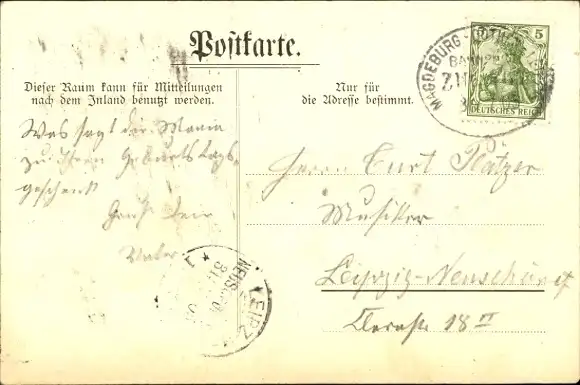 Postkarte.
Dieser Raum kann für Mitteilungen
nach dem Inland benutzt werden.
Nur für
die Adresse bestimmt.
MAGDEBURG
BAHNP
ZUG
5
DEUTSCHES REICH
Was sagt die Mama
zu Ihrem Geburtstags
geschenk
Gruß Dein
Vater
Herrn Curt Platzer
Musiker
Leipzig-Neuschönef
Clarastr 18 II
LEIPZ